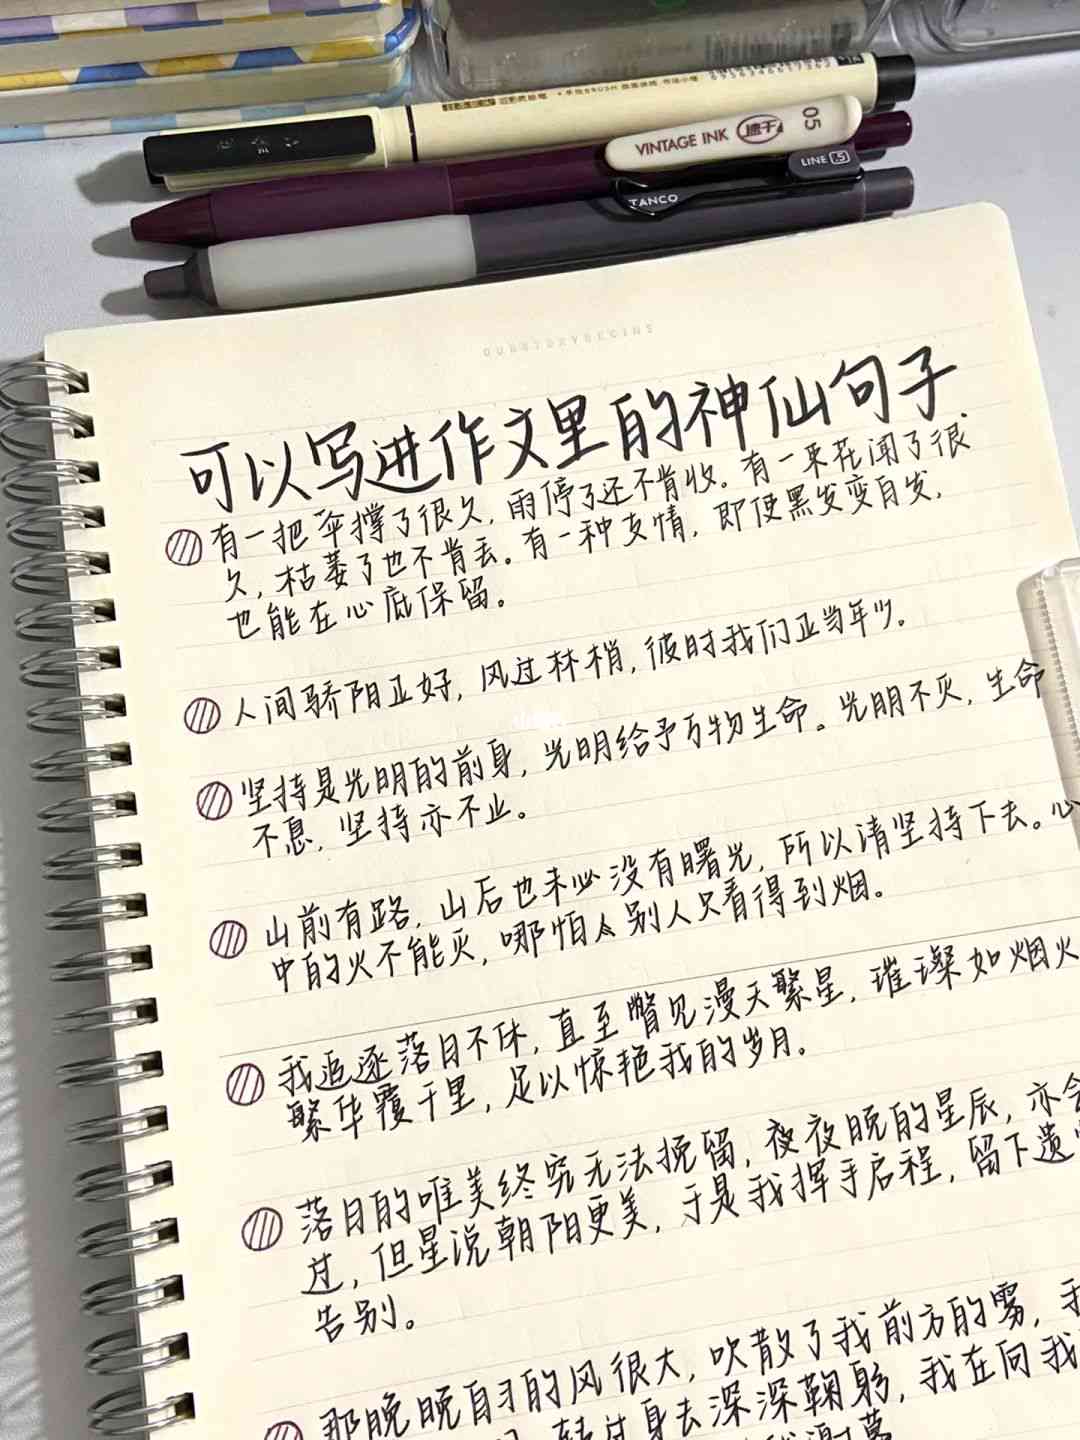 VINTAGE INK 速干 05
LINE .5
TANCO
OURSTORYBEGINS
可以写进作文里的神仙句子
有一把伞撑了很久，雨停了还不肯收。有一束花闻了很
久，枯萎了也不肯丢。有一种友情，即使黑发变白发，
也能在心底保留。
人间骄阳正好，风过林梢，彼时我们正当年少。
坚持是光明的前身，光明给予万物生命。光明不灭，生命
不息，坚持亦不止。
山前有路，山后也未必没有曙光，所以请坚持下去。心
中的火不能灭，哪怕别人只看得到烟。
我追逐落日不休，直至瞥见漫天繁星，璀璨如烟火
繁华覆千里，足以惊艳我的岁月。
落日的唯美终究无法挽留，夜夜晚的星辰，亦会
过，但星说朝阳更美，于是我挥手启程，留下遗
告别。
那晚晚自习的风很大，吹散了我前方的雾，
转过身去深深鞠躬，我在向我